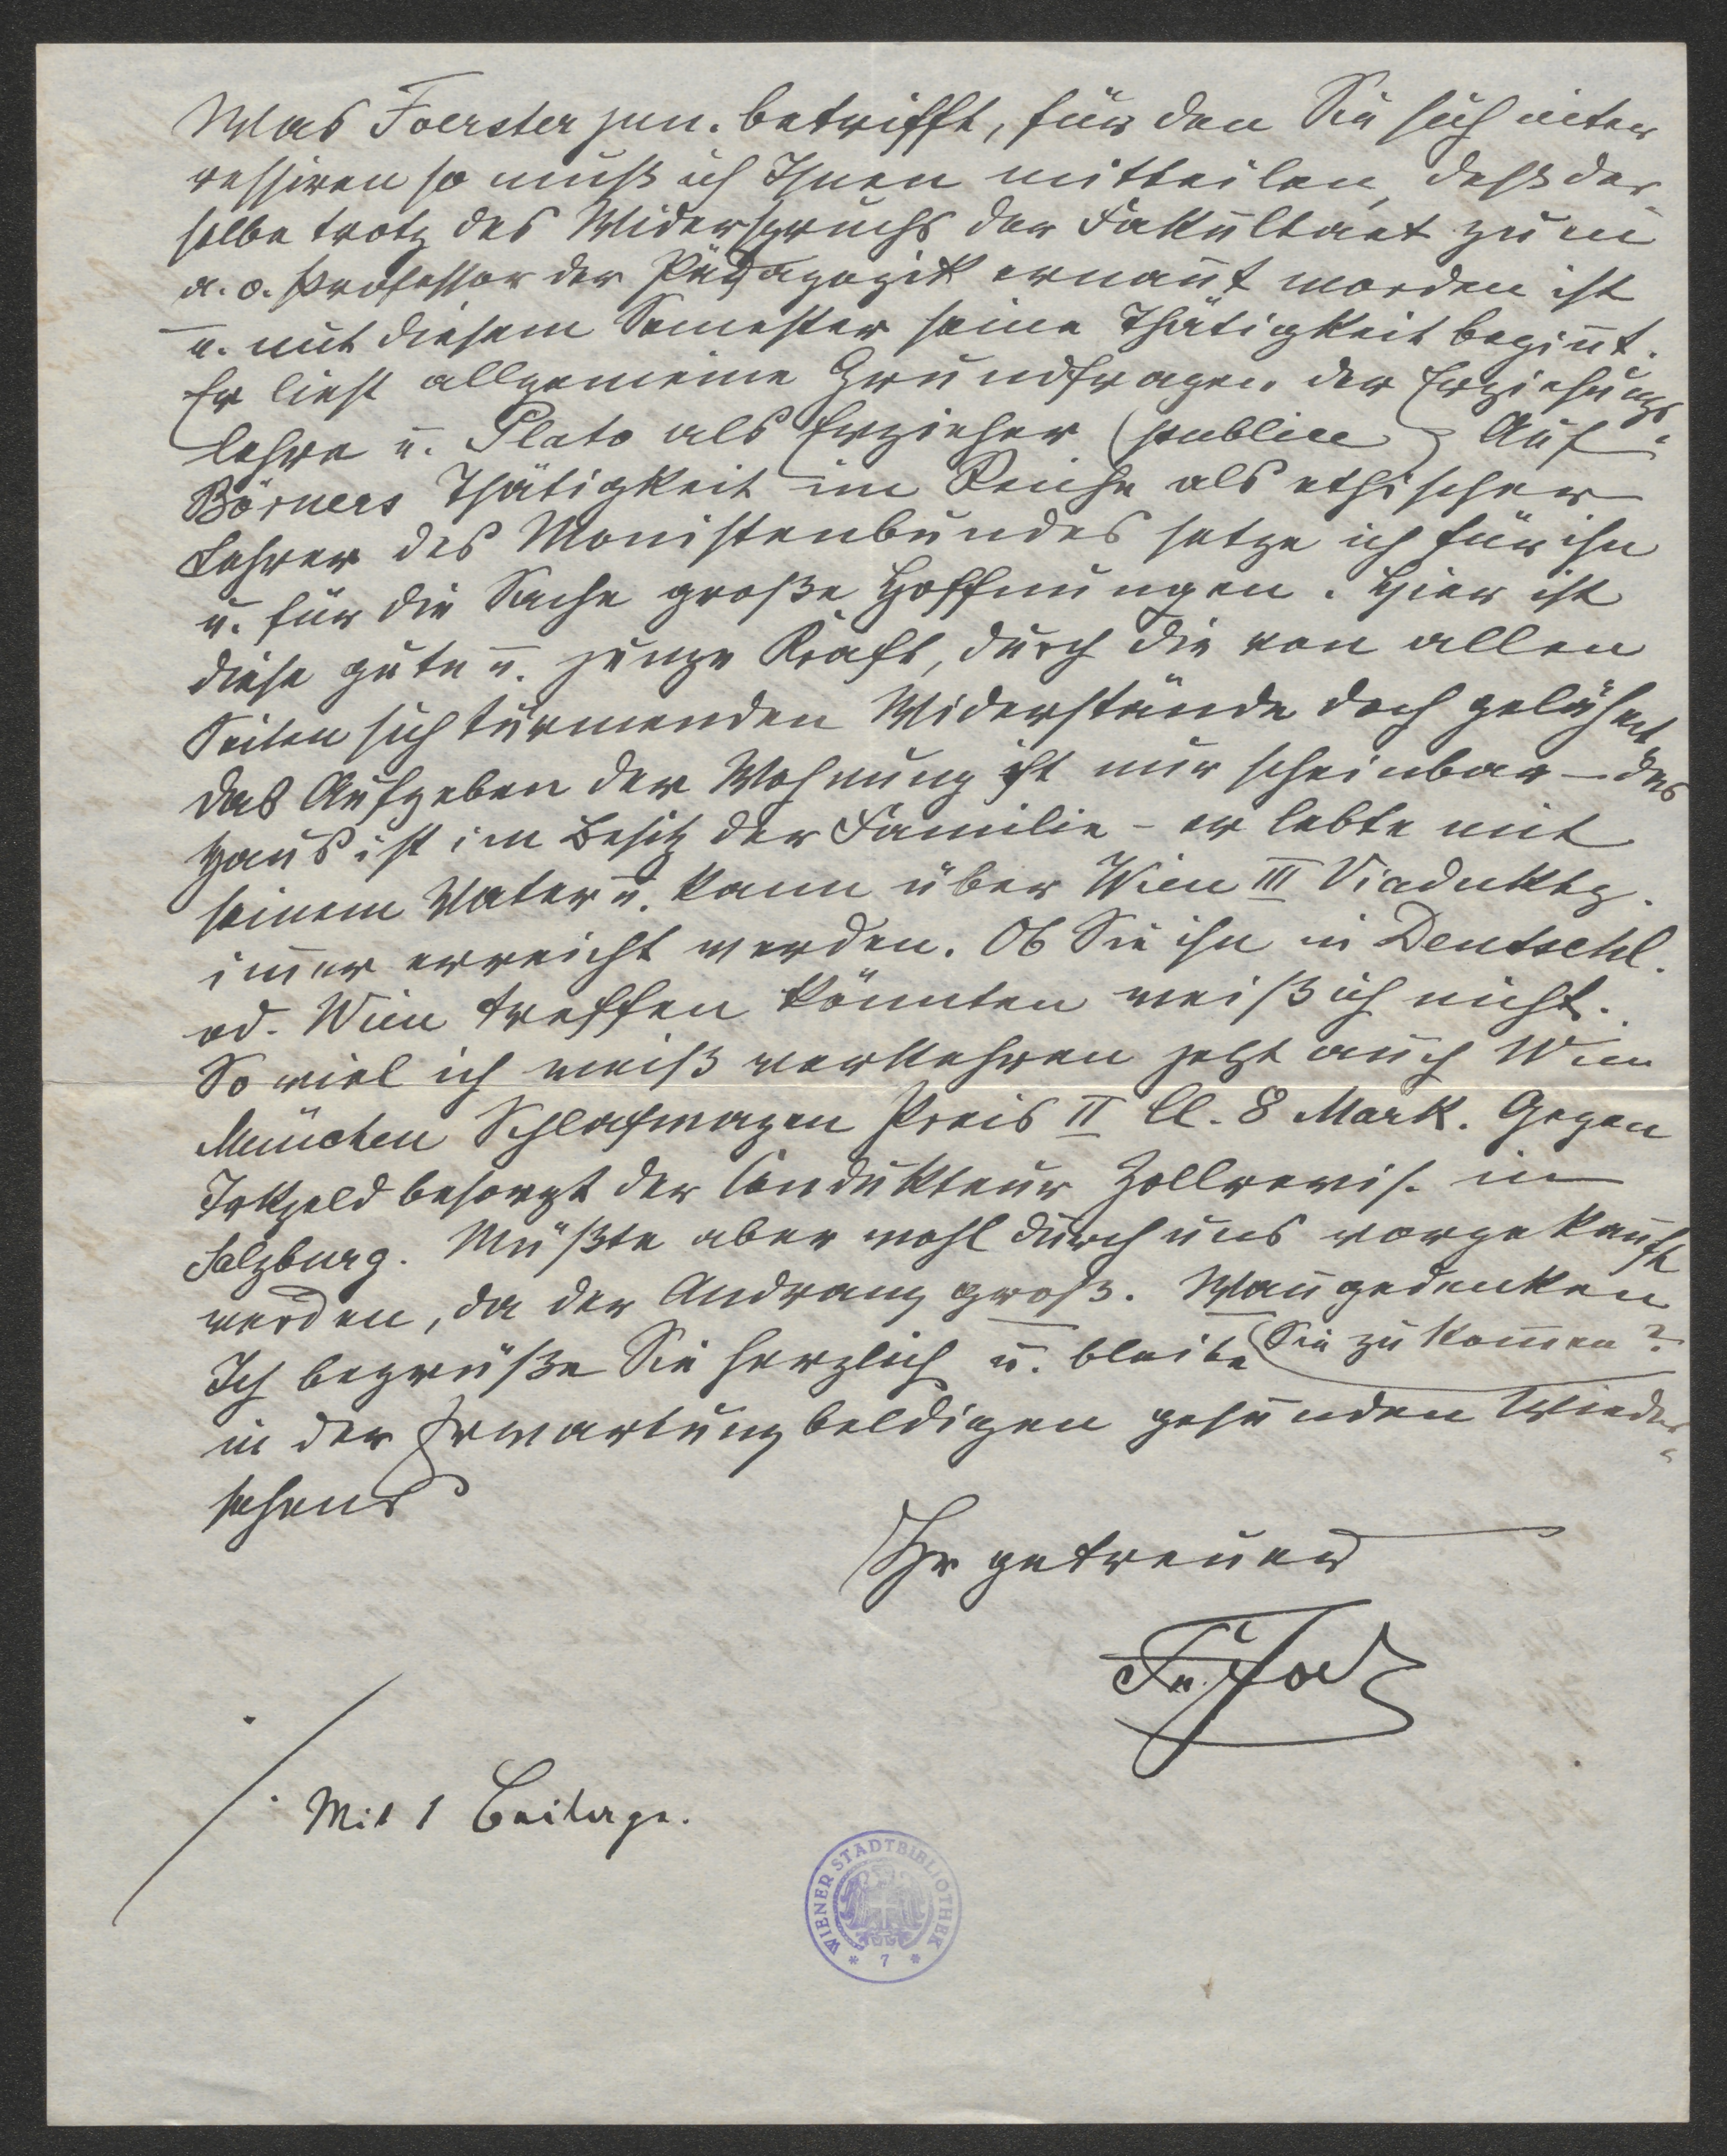 Was Foerster jun. betrifft, für den Sie sich inter
ressiren so muß ich Ihnen mitteilen, daß der-
selbe trotz des Widerspruchs der Fakultaet zum
a. o. Professor der Pädagogik ernañt worden ist
u. mit diesem Semester seine Thätigkeit begiñt.
Er liest allgemeine Grundfragen der Erziehungs-
lehre u. Plato als Erzieher (publice) Auf
Börners Thätigkeit im Reiche als ethischer
Lehrer des Monistenbundes setze ich für ihn
u. für die Sache große Hoffnungen. Hier ist
diese gute u. junge Kraft, durch die von allen
Seiten sich türmenden Widerstände doch gelähmt
das Aufgeben der Wohnung ist nur scheinbar – das
Haus ist im Besitz der Familie – er lebte mit
seinem Vater u. kann über Wien III Viaduktg.
im̄er erreicht werden. Ob Sie ihn in Deutschl.
od. Wien treffen könnten weiß ich nicht.
So viel ich weiß verkehren jetzt auch Wien
München Schlafwagen Preis II Cl. 8 Mark. Gegen
Trkgeld besorgt der Condukteur Zollrevis. in
Salzburg. Müßte aber wohl durch uns vorgekauft
werden, da der Andrang groß. Wañ gedenken
Sie zu kom̄en?
Ich begrüße Sie herzlich u. bleibe
in der Erwartung baldigen gesunden Wieder-
sehens
Ihr getreuer
Fr. Jodl
Mit 1 Beilage.
WIENER STADTBIBLIOTHEK
* 7 *